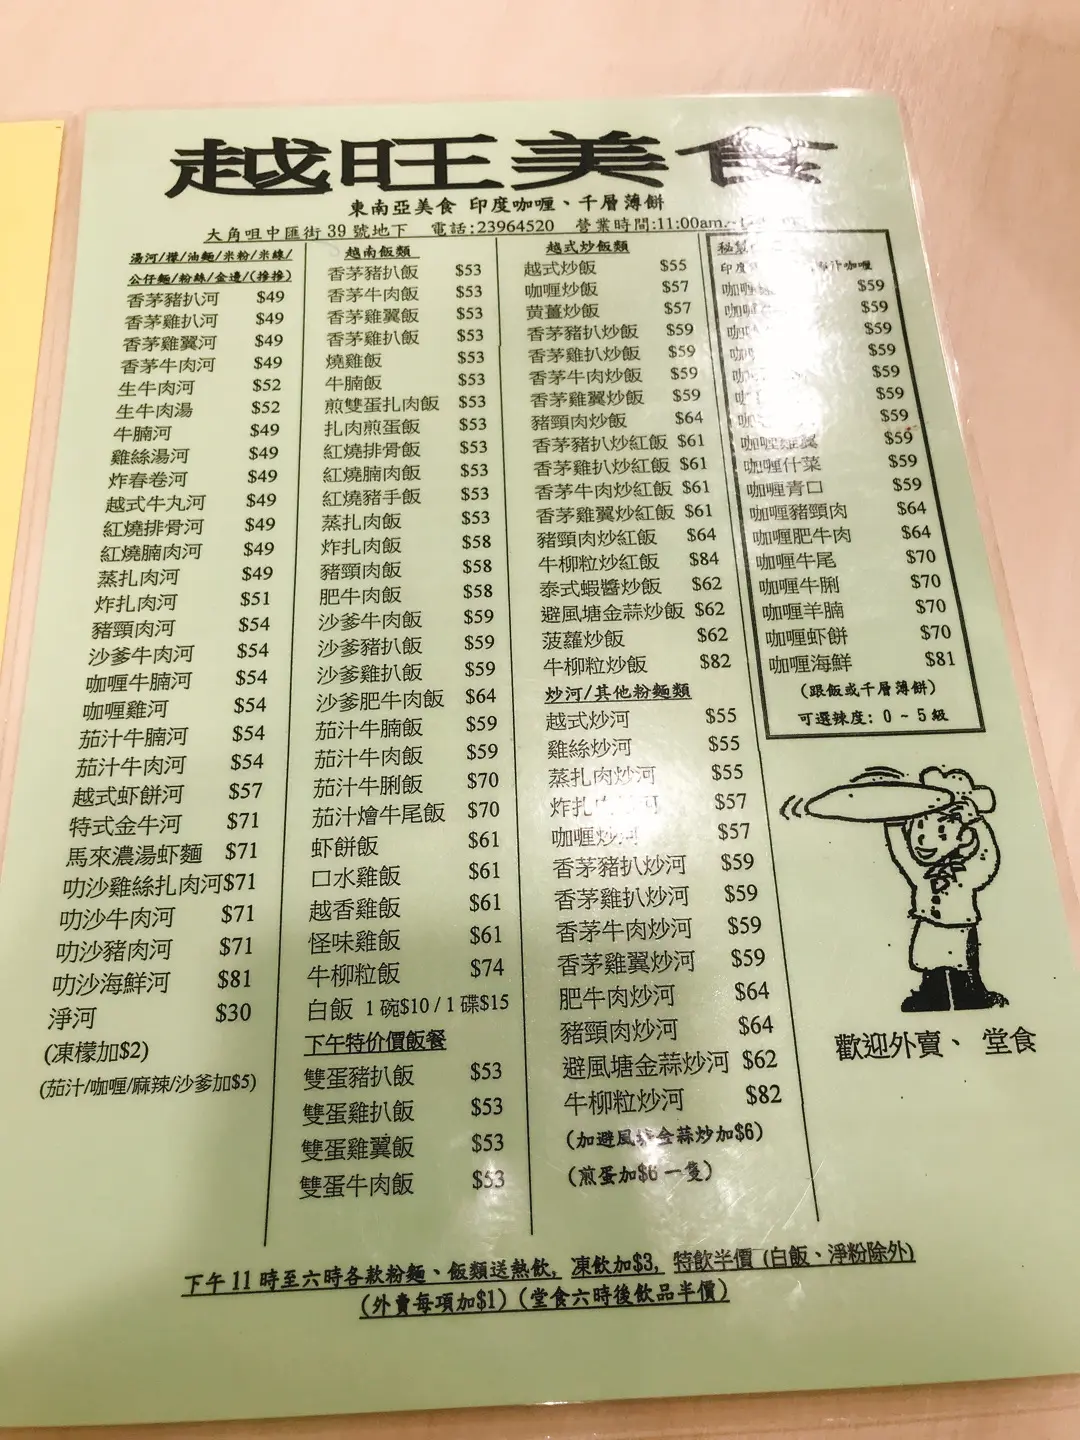 越旺美食
東南亞美食 印度咖喱、千層薄餅
大角咀中匯街 39 號地下 電話:23964520 營業時間:11:00am.
湯河/檬/油麵/米粉/米線/
公仔麵/粉絲/金邊/(撈撈)
香茅豬扒河 $49
香茅雞扒河 $49
香茅雞翼河 $49
香茅牛肉河 $49
生牛肉河 $52
生牛肉湯 $52
牛腩河 $49
雞絲湯河 $49
炸春卷河 $49
越式牛丸河 $49
紅燒排骨河 $49
紅燒腩肉河 $49
蒸扎肉河 $49
炸扎肉河 $51
豬頸肉河 $54
沙爹牛肉河 $54
咖喱牛腩河 $54
咖喱雞河 $54
茄汁牛腩河 $54
茄汁牛肉河 $54
越式虾餅河 $57
特式金牛河 $71
馬來濃湯虾麵 $71
叻沙雞絲扎肉河$71
叻沙牛肉河 $71
叻沙豬肉河 $71
叻沙海鮮河 $81
淨河 $30
(凍檬加$2)
(茄汁/咖喱/麻辣/沙爹加$5)
越南飯類
香茅豬扒飯 $53
香茅牛肉飯 $53
香茅雞翼飯 $53
香茅雞扒飯 $53
燒雞飯 $53
牛腩飯 $53
煎雙蛋扎肉飯 $53
扎肉煎蛋飯 $53
紅燒排骨飯 $53
紅燒腩肉飯 $53
紅燒豬手飯 $53
蒸扎肉飯 $53
炸扎肉飯 $58
豬頸肉飯 $58
肥牛肉飯 $58
沙爹牛肉飯 $59
沙爹豬扒飯 $59
沙爹雞扒飯 $59
沙爹肥牛肉飯 $64
茄汁牛腩飯 $59
茄汁牛肉飯 $59
茄汁牛脷飯 $70
茄汁燴牛尾飯 $70
虾餅飯 $61
口水雞飯 $61
越香雞飯 $61
怪味雞飯 $61
牛柳粒飯 $74
白飯 1 碗$10 / 1 碟$15
下午特价價飯餐
雙蛋豬扒飯 $53
雙蛋雞扒飯 $53
雙蛋雞翼飯 $53
雙蛋牛肉飯 $53
越式炒飯類
越式炒飯 $55
咖喱炒飯 $57
黃薑炒飯 $57
香茅豬扒炒飯 $59
香茅雞扒炒飯 $59
香茅牛肉炒飯 $59
香茅雞翼炒飯 $59
豬頸肉炒飯 $64
香茅豬扒炒紅飯 $61
香茅雞扒炒紅飯 $61
香茅牛肉炒紅飯 $61
香茅雞翼炒紅飯 $61
豬頸肉炒紅飯 $64
牛柳粒炒紅飯 $84
泰式蝦醬炒飯 $62
避風塘金蒜炒飯 $62
菠蘿炒飯 $62
牛柳粒炒飯 $82
炒河/其他粉麵類
越式炒河 $55
雞絲炒河 $55
蒸扎肉炒河 $55
炸扎河 $57
咖喱炒河 $57
香茅豬扒炒河 $59
香茅雞扒炒河 $59
香茅牛肉炒河 $59
香茅雞翼炒河 $59
肥牛肉炒河 $64
豬頸肉炒河 $64
避風塘金蒜炒河 $62
牛柳粒炒河 $82
(加避風塘金蒜炒加$6)
(煎蛋加$6 一隻)
秘製
印度 咖喱
咖喱 $59
咖喱 $59
咖 $59
咖 $59
咖 $59
$59
$59
咖喱雞翼 $59
咖喱什菜 $59
咖喱青口 $59
咖喱豬頸肉 $64
咖喱肥牛肉 $64
咖喱牛尾 $70
咖喱牛脷 $70
咖喱羊腩 $70
咖喱虾餅 $70
咖喱海鮮 $81
(跟飯或千層薄餅)
可選辣度: 0 ~ 5 級
歡迎外賣、 堂食
下午 11 時至六時各款粉麵、飯類送熱飲, 凍飲加$3, 特飲半價 (白飯、淨粉除外)
(外賣每項加$1) (堂食六時後飲品半價)